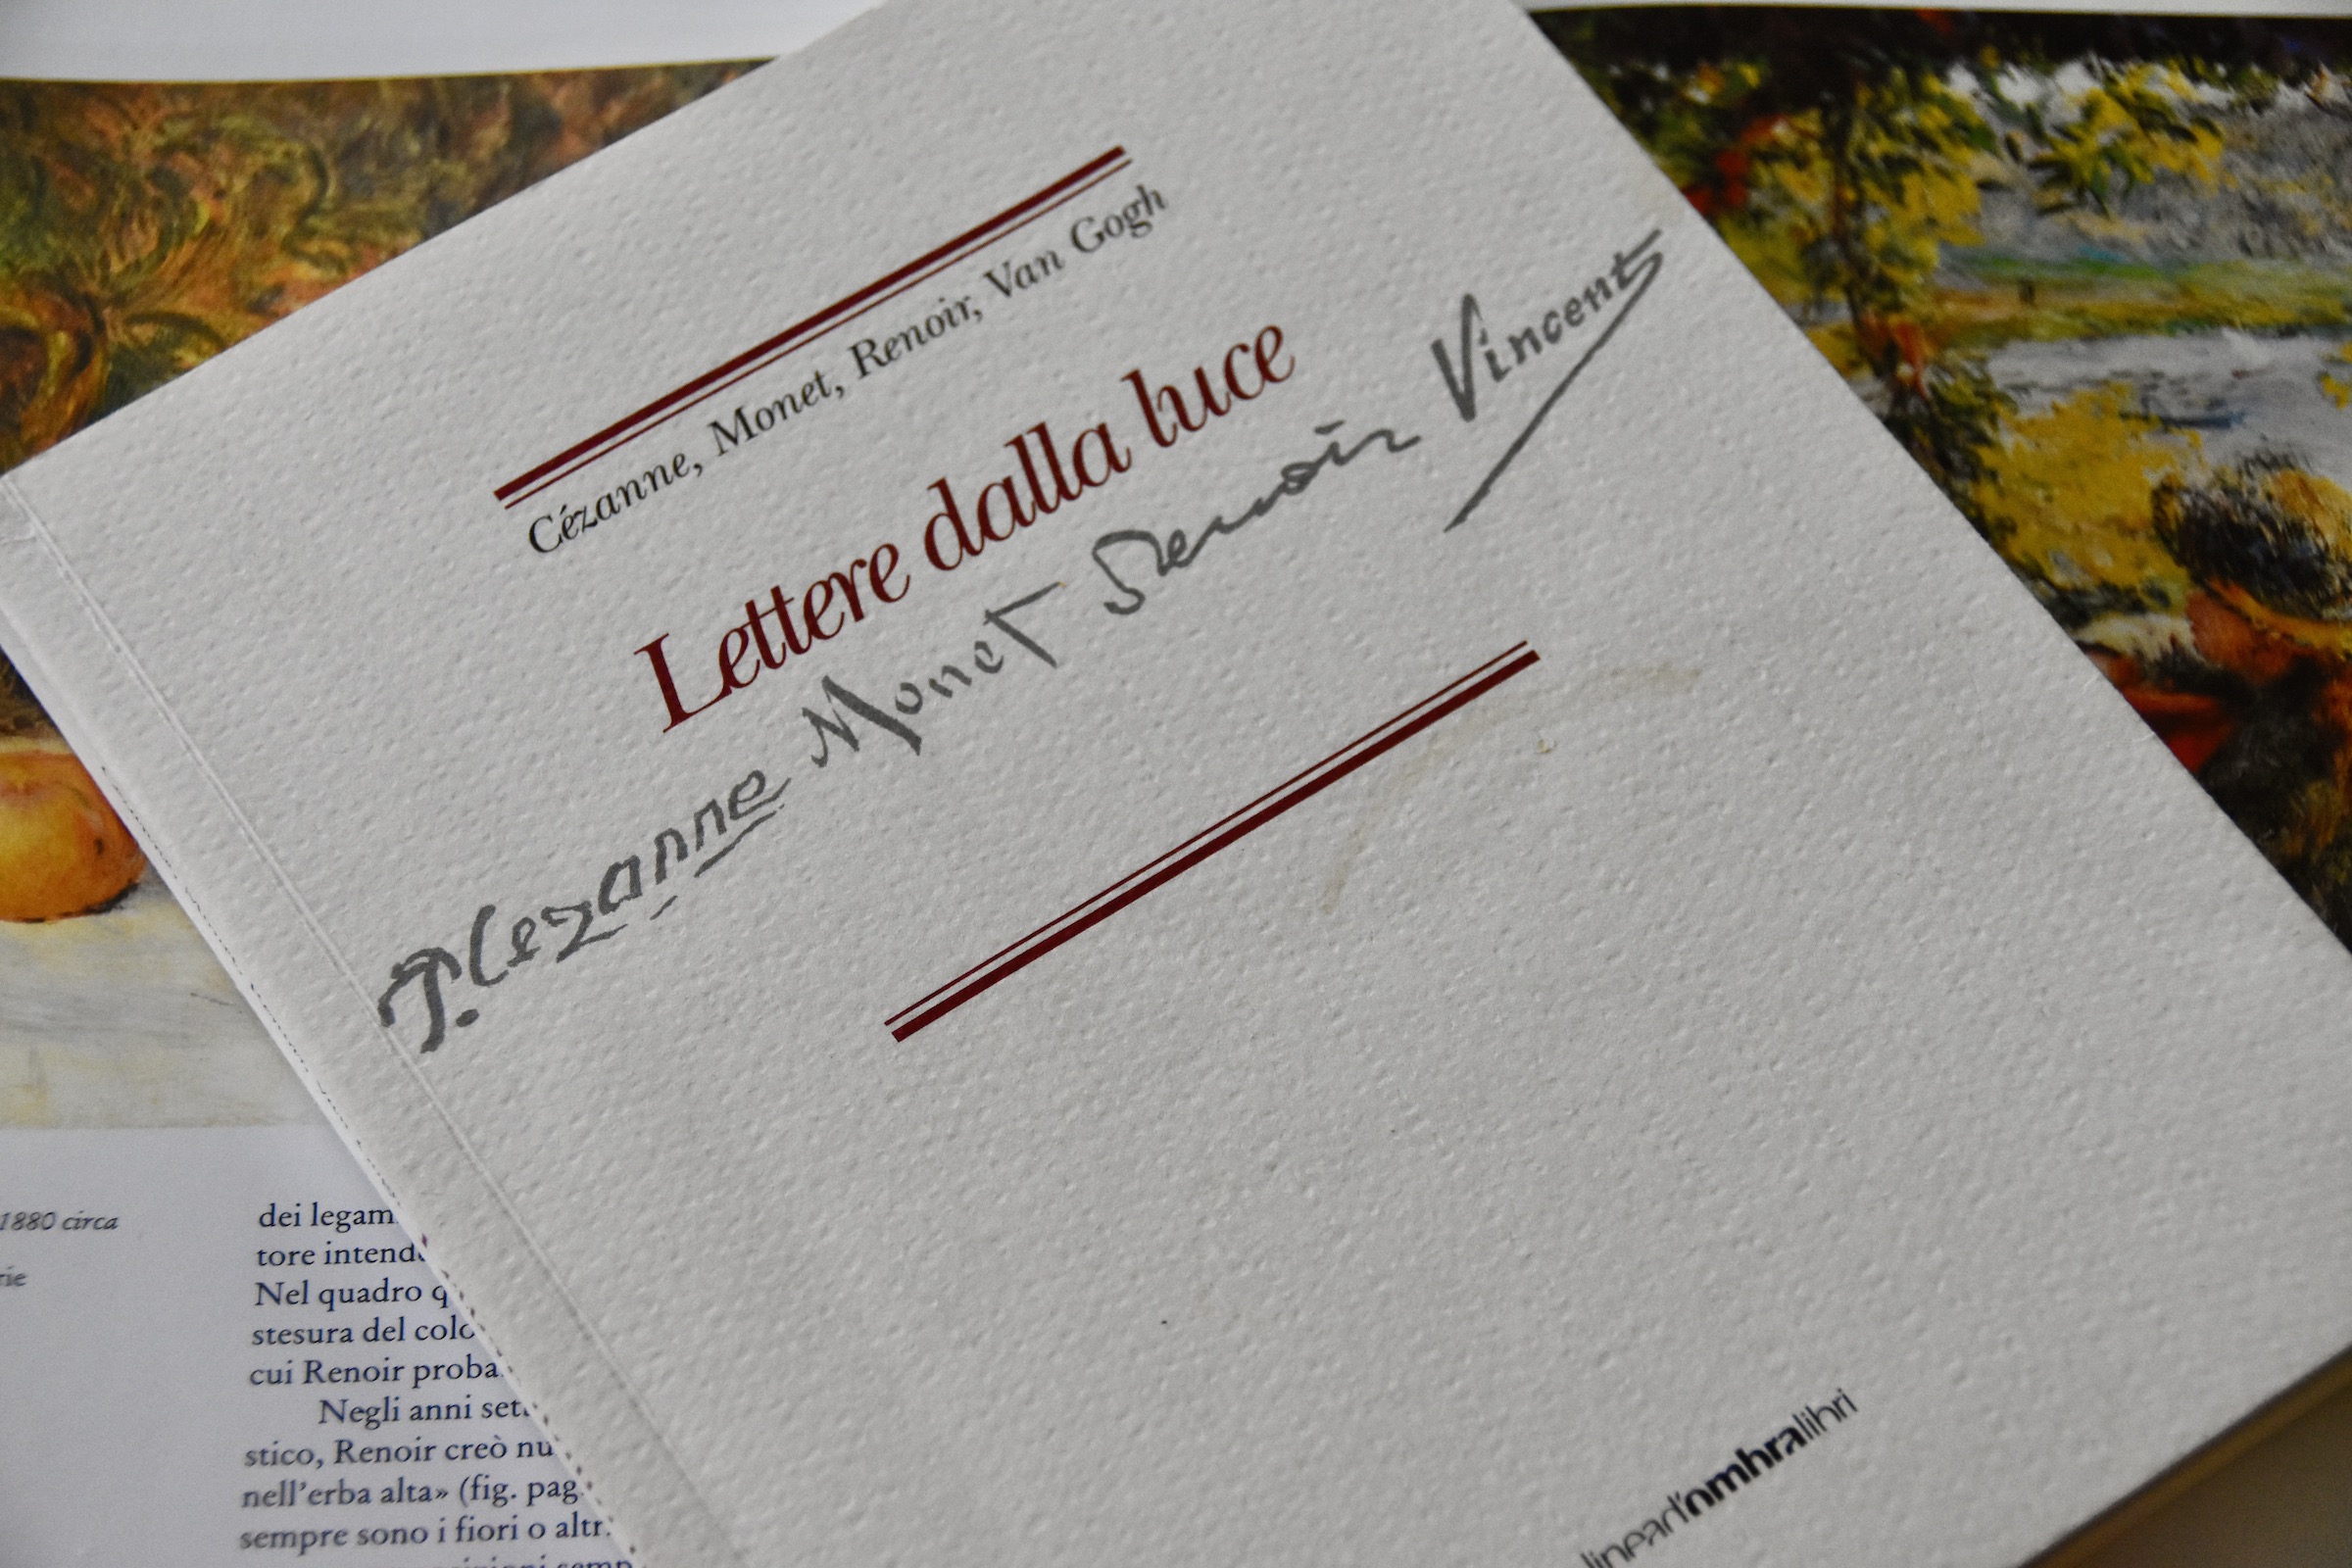 Cézanne, Monet, Renoir, Van Gogh
Lettere dalla luce
P. Cezanne Monet Renoir Vincent
linead'ombralibri
1880 circa
dei legam
tore intend
Nel quadro q
stesura del colo
cui Renoir proba
Negli anni set
stico, Renoir creò nu
nell'erba alta» (fig. pag.
sempre sono i fiori o altr